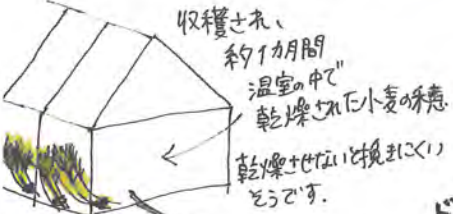 収穫され、
約1カ月間
温室の中で
乾燥された小麦の穂
乾燥させないと挽きにくい
そうです.